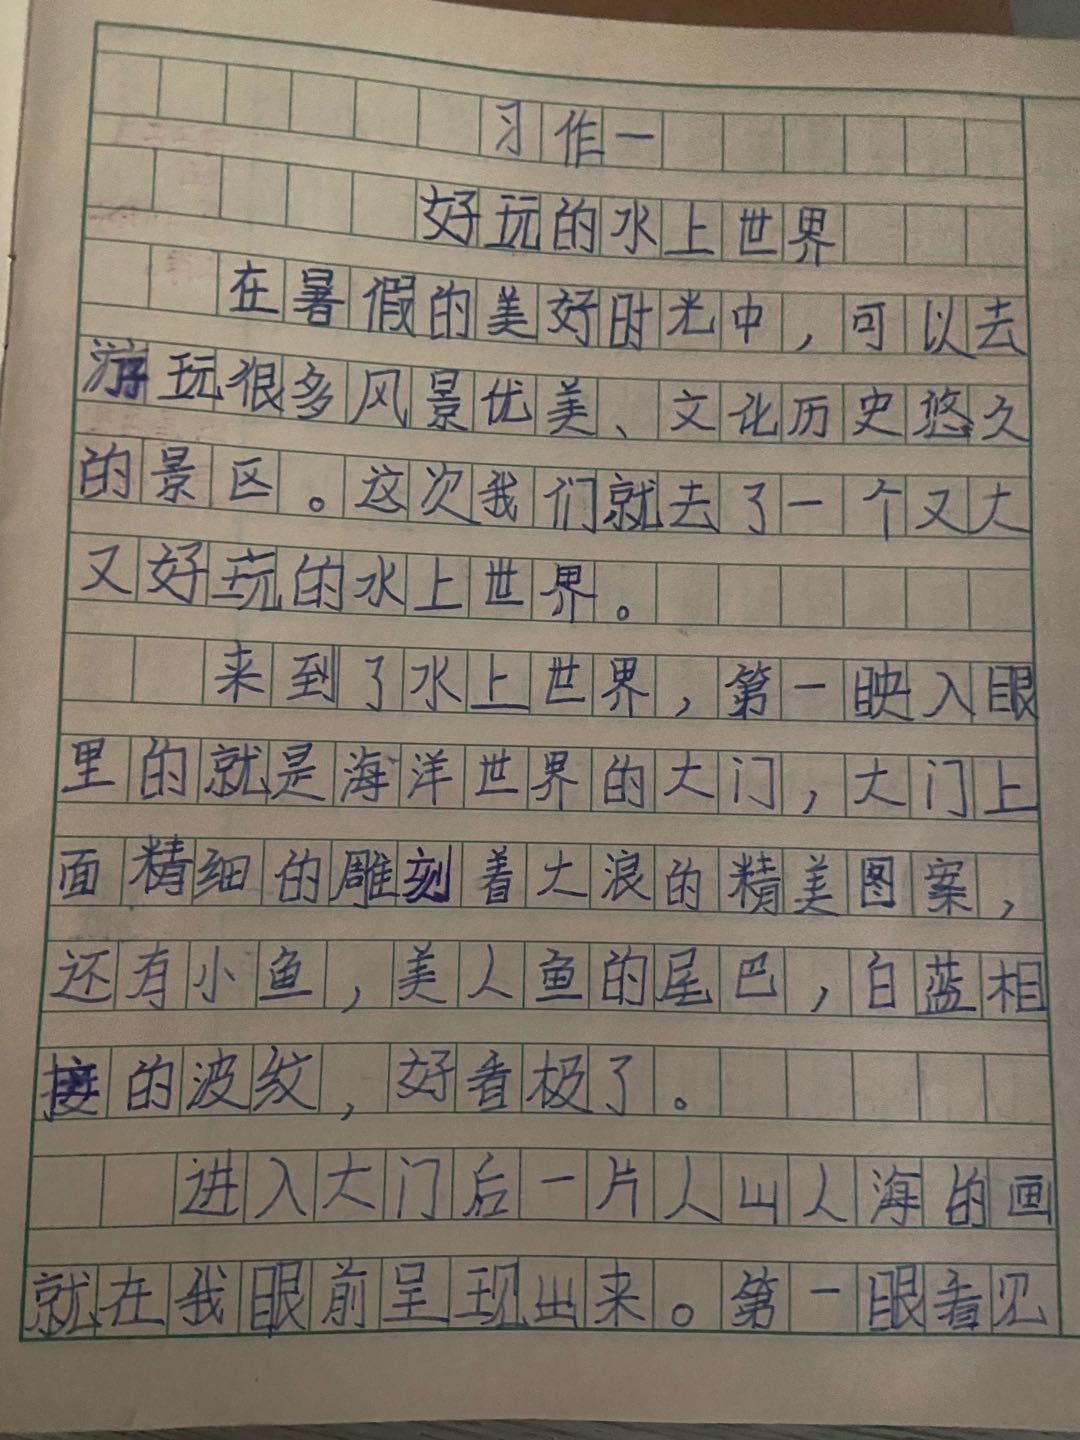 习作一
好玩的水上世界
在暑假的美好时光中，可以去
游玩很多风景优美、文化历史悠久
的景区。这次我们就去了一个又大
又好玩的水上世界。
来到了水上世界，第一映入眼
里的就是海洋世界的大门，大门上
面精细的雕刻着大浪的精美图案，
还有小鱼，美人鱼的尾巴，白蓝相
接的波纹，好看极了。
进入大门后一片人山人海的画
就在我眼前呈现出来。第一眼看见